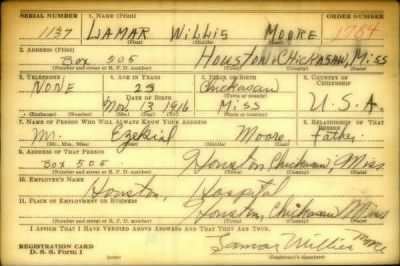 SERIAL NUMBER 1. NAME (Print) ORDER NUMBER
1137 LAMAR WILLIS MOORE 1784
(First) (Middle) (Last)
2. ADDRESS (Print)
Box 505 HOUSTON, CHICKASAW, MISS
(Number and street or R. F. D. number) (Town) (County) (State)
3. TELEPHONE 4. AGE IN YEARS 5. PLACE OF BIRTH 6. COUNTRY OF CITIZENSHIP
NONE 23 Chickasaw
DATE OF BIRTH (Town or county)
Nov. 13, 1916 MISS U.S.A.
(Exchange) (Number) (Mo.) (Day) (Yr.) (State or country)
7. NAME OF PERSON WHO WILL ALWAYS KNOW YOUR ADDRESS 8. RELATIONSHIP OF THAT PERSON
Mr. Ezekial Moore Father
(Mr., Mrs., Miss) (First) (Middle) (Last)
9. ADDRESS OF THAT PERSON
Box 505 Houston, Chickasaw, Miss.
(Number and street or R. F. D. number) (Town) (County) (State)
10. EMPLOYER'S NAME
Houston, Hospital
11. PLACE OF EMPLOYMENT OR BUSINESS
Houston, Chickasaw, Miss
(Number and street or R. F. D. number) (Town) (County) (State)
I AFFIRM THAT I HAVE VERIFIED ABOVE ANSWERS AND THAT THEY ARE TRUE.
REGISTRATION CARD
D. S. S. Form 1 Lamar Willis Moore
(over) (Registrant's signature)